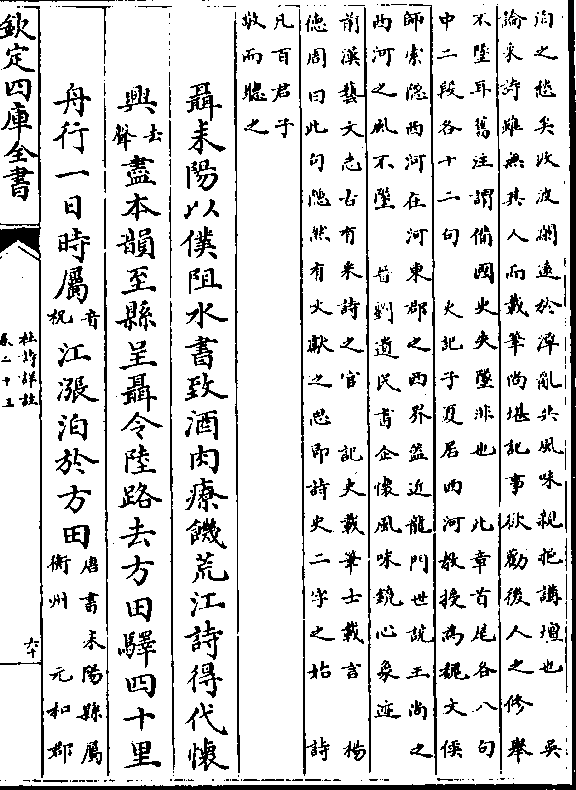 之繼矣次波瀾遠於亂矣風味親挹講壇也 吳
論采詩雖無其人而載筆尚堪記事欲勸後人之修舉
不墜耳舊注謂備國史失墜非也 此章首尾各八句
中二段各十二句 史記子夏居西河教授為魏文侯
師索隱西河在河東郡之西界蓋近龍門世說王尚之
西河之風不墜 昔劉遺民書企懷風味鏡心象迹
前漢藝文志古有采詩之官 記史載筆士載言 楊
德周曰此句隱然有文獻之思即詩史二字之始 詩
凡百君子
敬而聽之
聶耒陽以僕阻水書致酒肉療饑荒江詩得代懷
興去聲盡本韻至縣呈聶令陸路去方田驛四十里
舟行一日時屬音祝江漲泊於方田唐書耒陽縣屬
衡州 元和郡
欽定四庫全書
杜詩詳註
卷二十三
六十